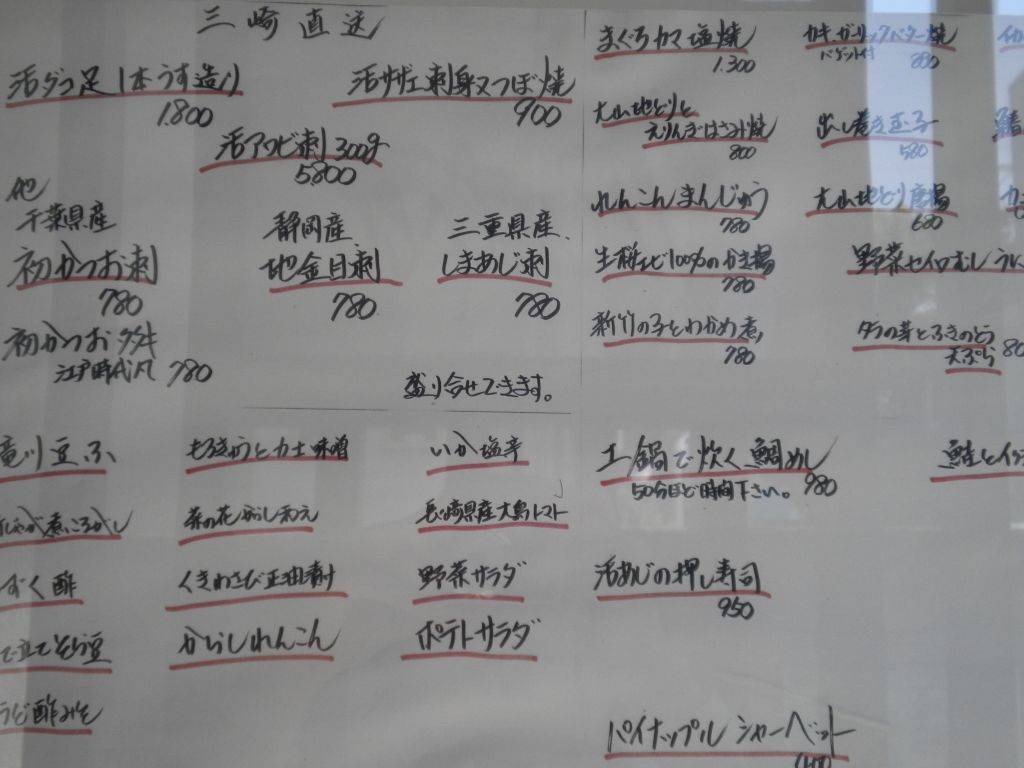 三崎直送
活ダコ足1本うす造り
1.800
活サザエ刺身又つぼ焼
900
活アワビ刺300g
5.800
他
千葉県産
初かつお刺
780
静岡産
地金目刺
780
三重県産
しまあじ刺
780
初かつおタタキ
江戸時代風 780
盛り合せできます。
竜川豆ふ
もろきゅうと力士味噌
いか塩辛
煮ころがし
菜の花からし和え
長崎県産大島トマト
ずく酢
くきわさび正油漬け
野菜サラダ
そら豆
からしれんこん
ポテトサラダ
酢みそ
まぐろカマ塩焼
1.300
カキガーリックバター焼
バゲット付 880
大山地どりと
えりんぎはさみ焼
800
出し巻き玉子
580
れんこんまんじゅう
780
大山地どり唐揚
680
生桜エビ100%のかき揚
780
野菜セイロむし
新竹の子とわかめ煮
780
タラの芽とふきのとう
天ぷら 80
土鍋で炊く鯛めし
50分ほど時間下さい。 980
鮭とイク
活あじの押し寿司
950
パイナップルシャーベット